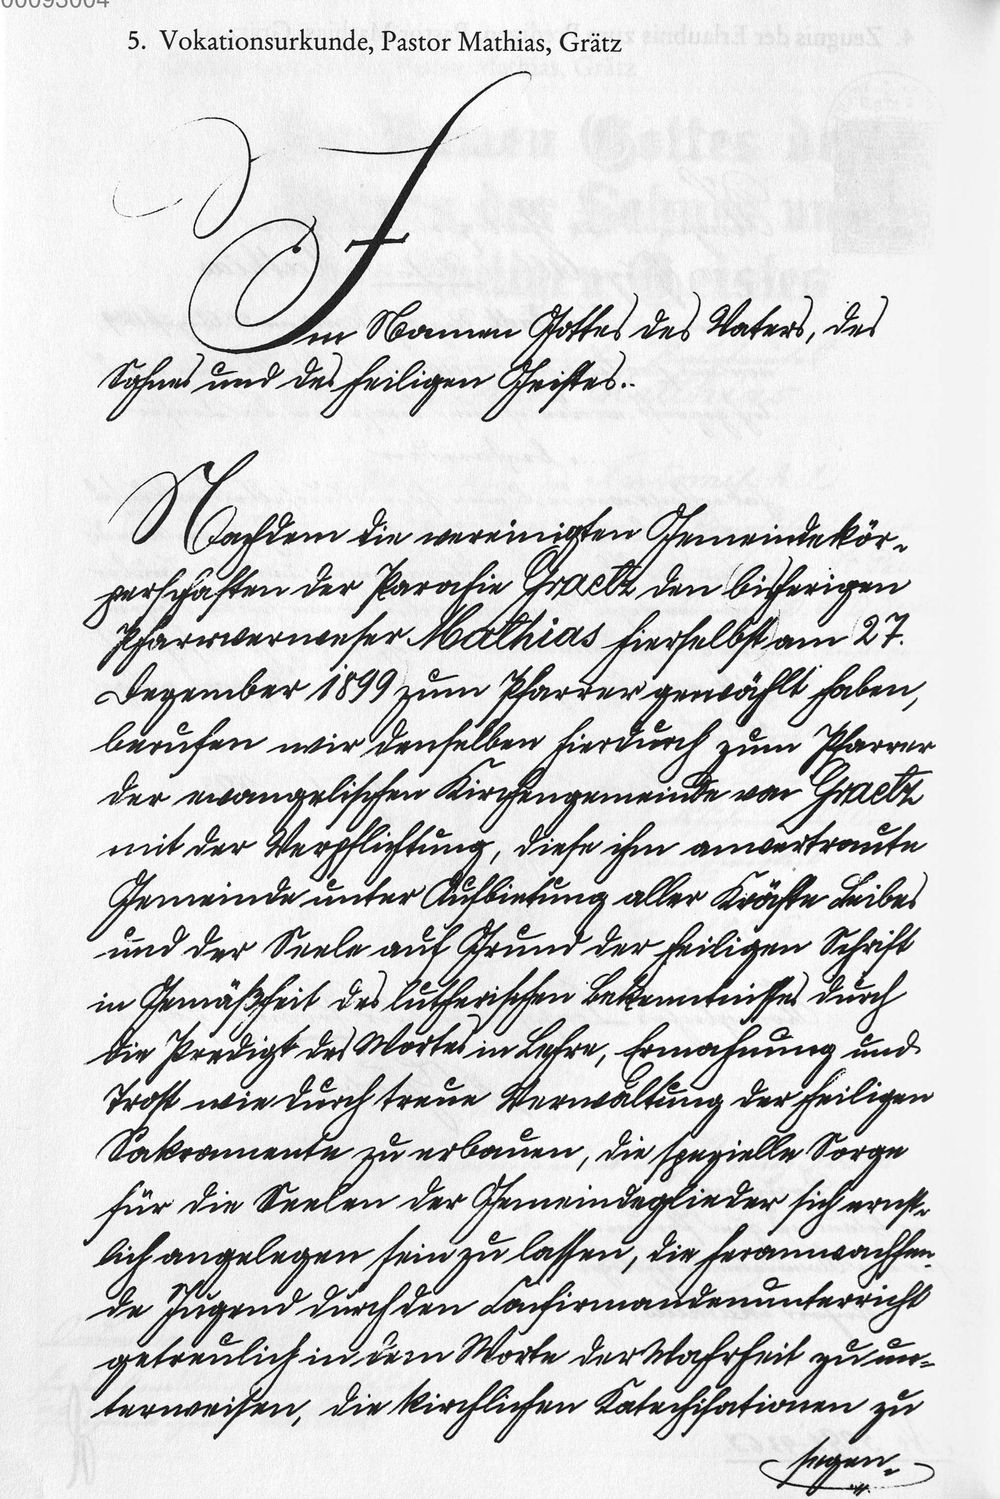 00093004
5. Vokationsurkunde, Pastor Mathias, Grätz
Im Namen Gottes des Vaters, des
Sohnes und des heiligen Geistes.
Nachdem die vereinigten Gemeindekör-
perschaften der Parochie Graetz den bisherigen
Pfarrverweser Mathias hierselbst am 27.
Dezember 1899 zum Pfarrer gewählt haben,
berufen wir denselben hierdurch zum Pfarrer
der evangelischen Kirchengemeinde von Graetz
mit der Verpflichtung, diese ihm anvertraute
Gemeinde unter Aufbietung aller Kräfte Leibes
und der Seele auf Grund der heiligen Schrift
in Gemäßheit des lutherischen Bekenntnisses durch
die Predigt des Wortes in Lehre, Ermahnung und
Trost wie durch treue Verwaltung der heiligen
Sakramente zu erbauen, die spezielle Sorge
für die Seelen der Gemeindeglieder sich ernst-
lich angelegen sein zu lassen, die heranwachsen-
de Jugend durch den Confirmandenunterricht
getreulich in dem Worte der Wahrheit zu un-
terweisen, die kirchlichen Katechisationen zu